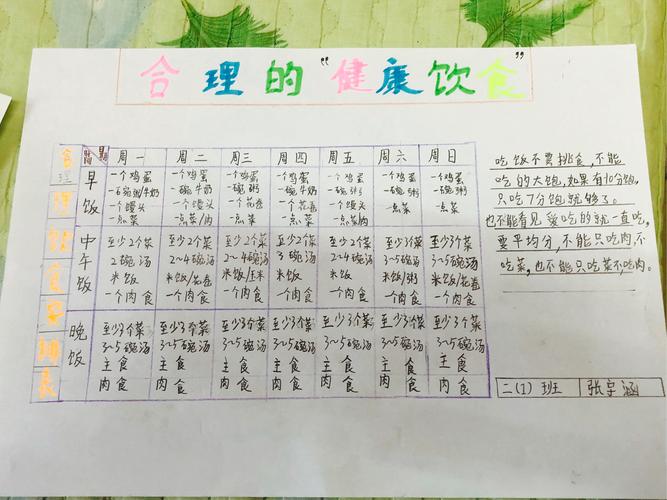 合理的“健康饮食”
合理饮食安排表
周一 周二 周三 周四 周五 周六 周日
早饭
一个鸡蛋 一个鸡蛋 一个鸡蛋 一个鸡蛋 一个鸡蛋 一个鸡蛋 一个鸡蛋
一碗粥/牛奶 一碗牛奶 一碗粥 一碗粥 一碗粥 一碗粥
一个馒头 一个馒头 一个花卷 一个花卷
一点菜 一点菜/肉 一点菜 一点菜 一点菜肉 一点菜 一点菜
中午饭
至少2个菜 至少2个菜 至少2个菜 至少2个菜 至少2个菜 至少3个菜 至少3个菜
2碗汤 2~4碗汤 2~4碗汤 3碗汤 2~4碗汤 3~5碗汤 3~5碗汤
米饭 米饭/花卷 米饭/玉米 米饭 米饭 米饭/粥 米饭/花卷
一个肉食 一个肉食 一个肉食 一个肉食 一个肉食 一个肉食 一个肉食
晚饭
至少3个菜 至少3个菜 至少3个菜 至少3个菜 至少3个菜 至少3个菜 至少3个菜
3~5碗汤 3~5碗汤 3~5碗汤 3~5碗汤 3~5碗汤 3~5碗汤 3~5碗汤
主食 主食 主食 主食 主食 主食 主食
肉食 肉食 肉食 肉食 肉食 肉食 肉食
吃饭不要挑食,不能
吃的太饱,如果有10分饱,
只吃7分饱就够了。
也不能看见爱吃的就一直吃,
要平均分,不能只吃肉,不
吃菜,也不能只吃菜不吃肉。
二(1)班 张宇涵